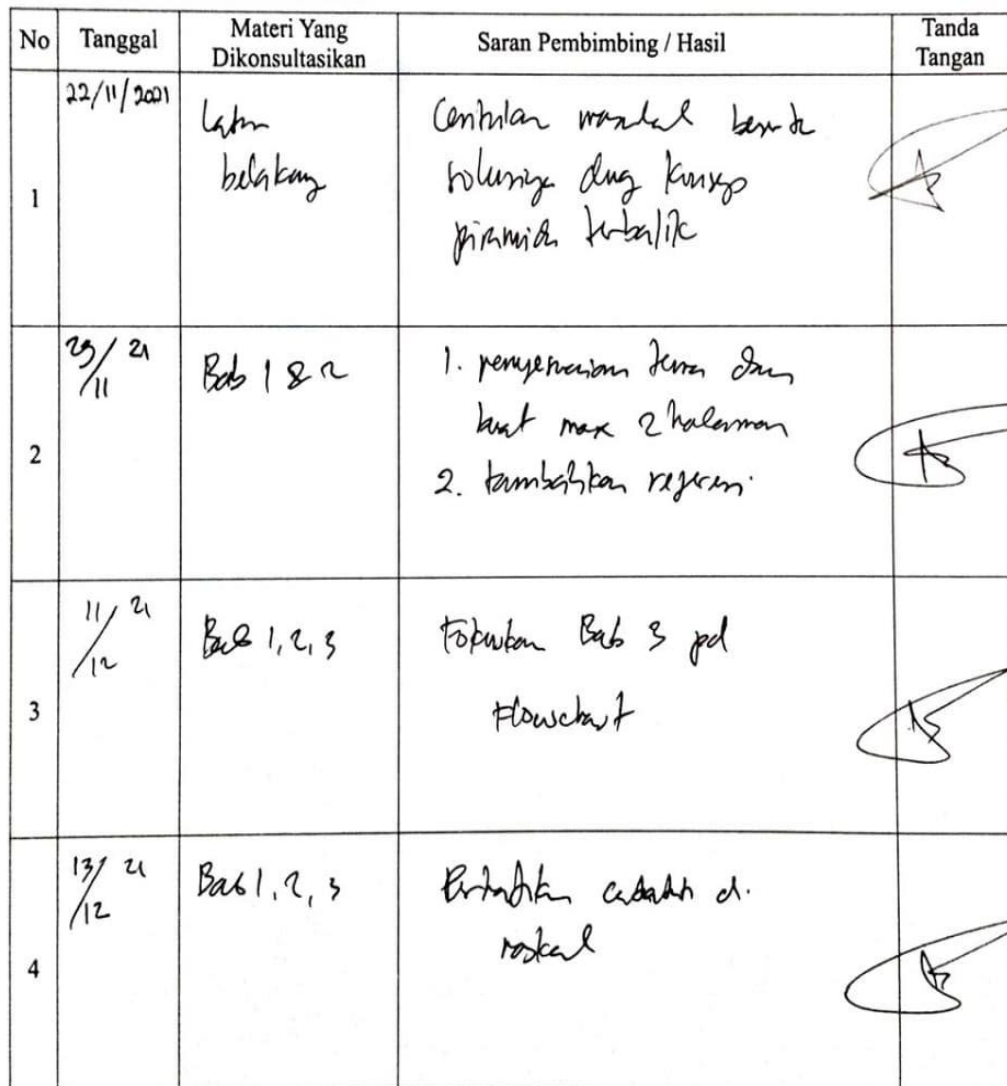 No Tanggal Materi Yang Dikonsultasikan Saran Pembimbing / Hasil Tanda Tangan
1 22/11/2021
Latar
belakang
masalah
solusinya dng konsep
piramida terbalik
2 29/11 21
Bab 1 & 2
1. penyesuaian tema dan
buat max 2 halaman
2. tambahkan referensi.
3 11/12 21
Bab 1, 2, 3
Fokuskan Bab 3 pd
Flowchart
4 13/12 21
Bab 1, 2, 3
Perhatikan catatan di